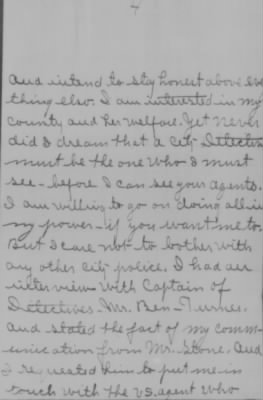 4
and intend to stay honest above eve
thing else. I am interested in my
county and her welfare. Yet never
did I dream that a city Detective
must be the one who I must
see - before I can see your agents.
I am willing to go on doing all in
my power - if you want me to.
But I care not to bother with
any other city police. I had an
interview with Captain of
Detectives. Mr. Ben - Turner.
And stated the fact of my comm-
unication from Mr. Stone. And
I requested him to put me in
touch with the U.S. agent who